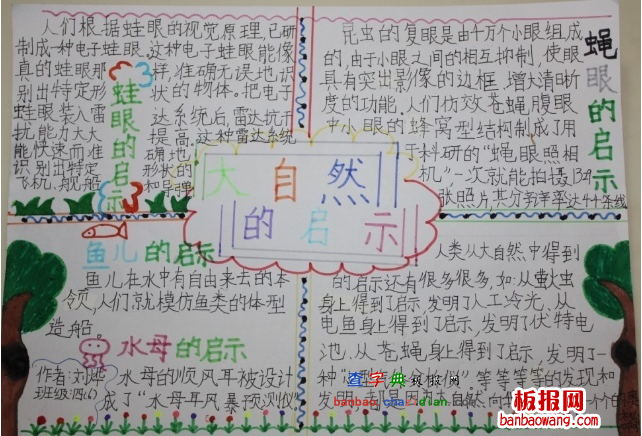 人们根据蛙眼的视觉原理,已研
制成一种电子蛙眼.这种电子蛙眼能像
真的蛙眼那样,准确无误地识
别出特定形状的物体。把电子
蛙眼装入雷达系统后,雷达抗干
扰能力大大提高.这种雷达系统
能快速而准确地
识别出特定形状的
飞机、舰船和导弹
蛙眼的启示
昆虫的复眼是由十万个小眼组成
的,由于小眼之间的相互抑制,使眼
具有突出影像的边框,增大清晰
度的功能.人们仿效苍蝇腹眼
中小眼的蜂窝型结构制成了用
于科研的“蝇眼照相
机”一次就能拍摄
张照片,其分
蝇眼的启示
大自然
的启示
鱼儿的启示
鱼儿在水中有自由来去的本
领,人们就模仿鱼类的体型
造船
水母的启示
作者:刘
班级:四(6)
水母的顺风耳被设计
成了“水母耳风暴预测仪”
人类从大自然中得到
的启示还有很多很多,如:从萤火虫
身上得到了启示,发明了人工冷光,从
电鱼身上得到了启示,发明了伏特电
池.从苍蝇身上得到了启示,发明了一
种
等等等等的发现和
发明,都是因为大自然
查字典 板报网
banbao.chazidian.com
板报网
banbaowang.com